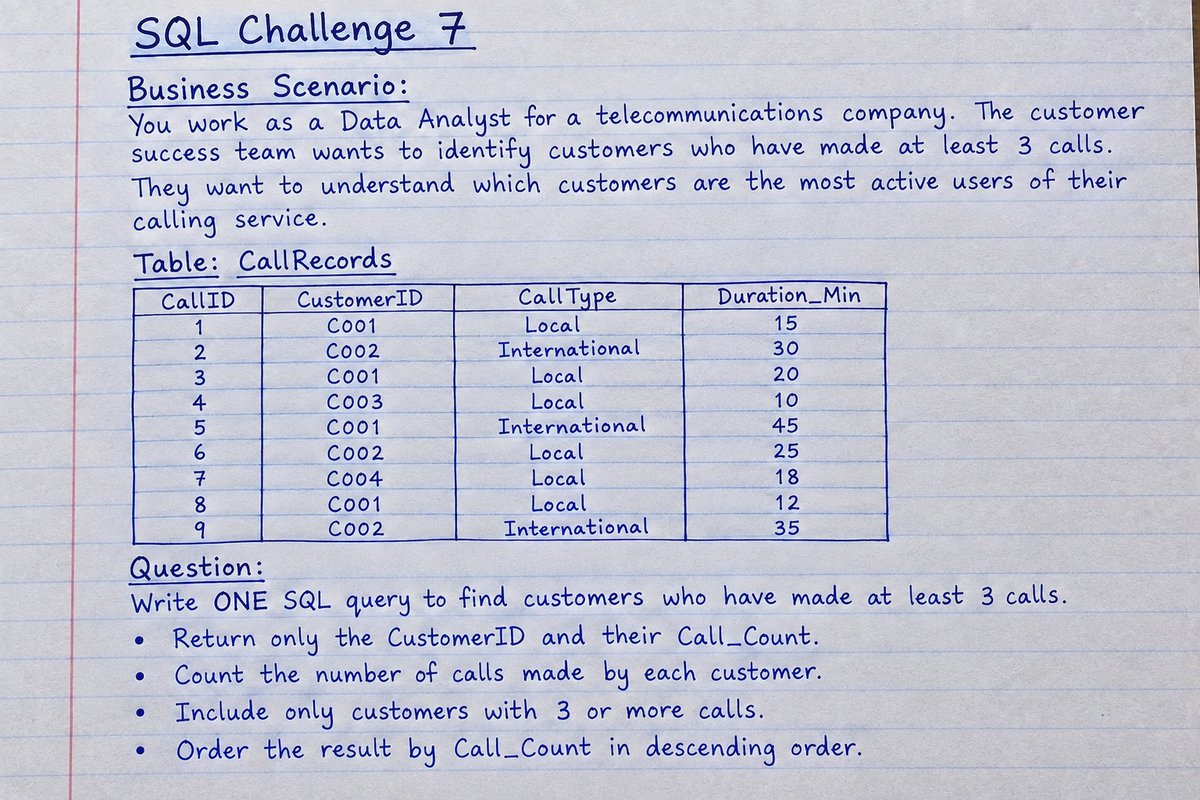 SQL Challenge 7
Business Scenario:
You work as a Data Analyst for a telecommunications company. The customer
success team wants to identify customers who have made at least 3 calls.
They want to understand which customers are the most active users of their
calling service.
Table: CallRecords
CallID CustomerID CallType Duration_Min
1 C001 Local 15
2 C002 International 30
3 C001 Local 20
4 C003 Local 10
5 C001 International 45
6 C002 Local 25
7 C004 Local 18
8 C001 Local 12
9 C002 International 35
Question:
Write ONE SQL query to find customers who have made at least 3 calls.
• Return only the CustomerID and their Call_Count.
• Count the number of calls made by each customer.
• Include only customers with 3 or more calls.
• Order the result by Call_Count in descending order.